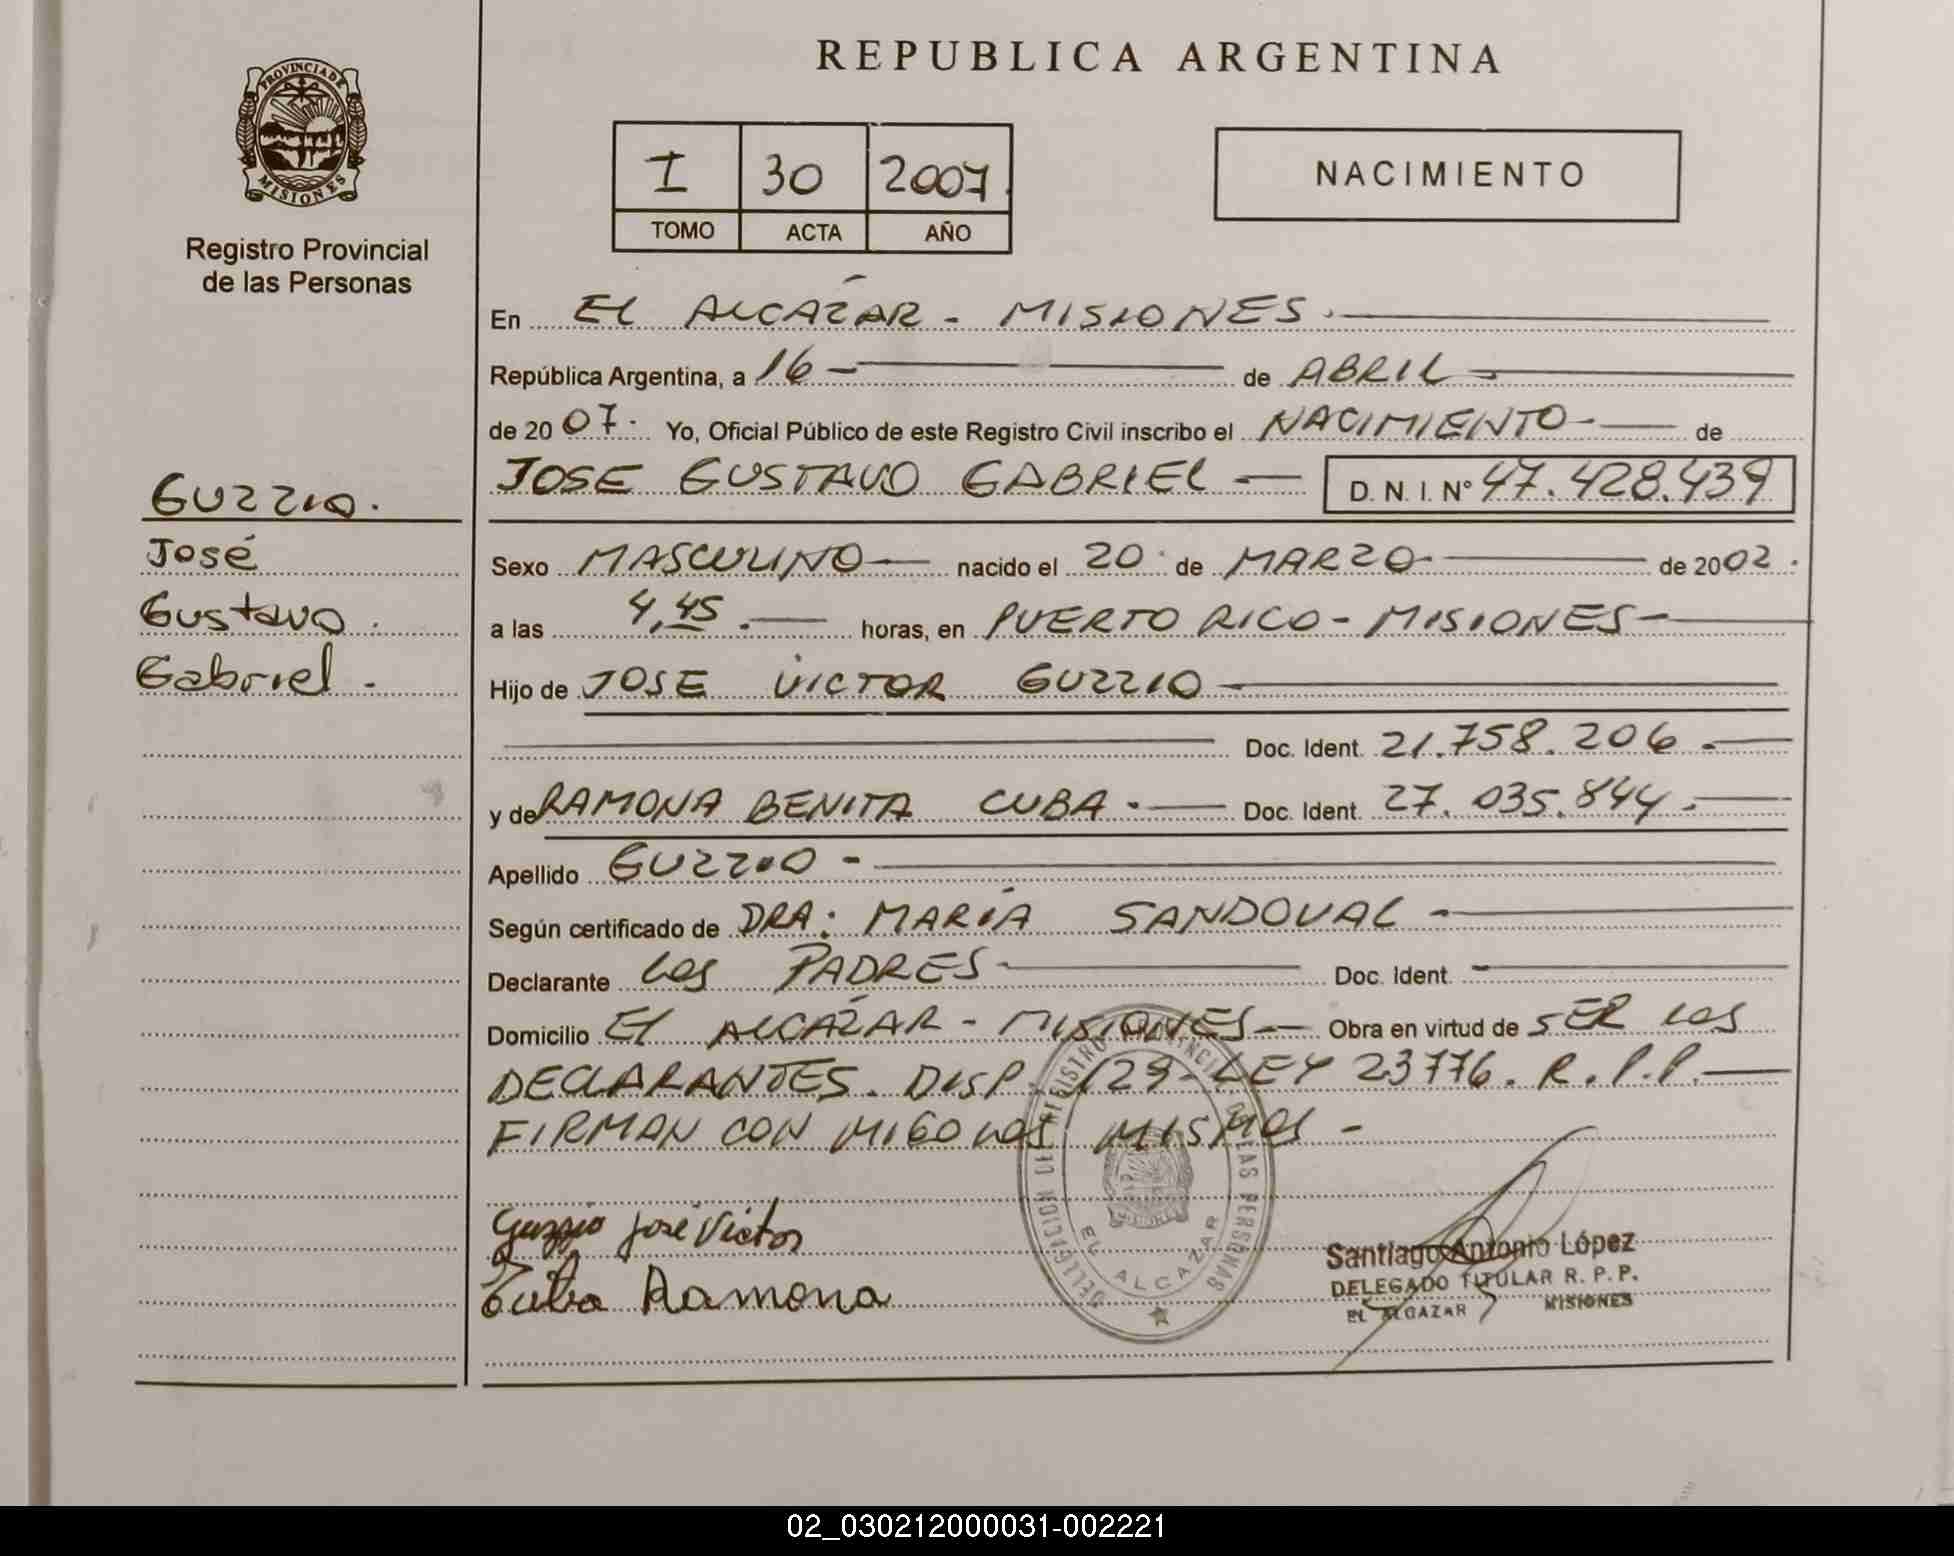 REPUBLICA ARGENTINA
PROVINCIA DE MISIONES
Registro Provincial
de las Personas
I 30 2007
TOMO ACTA AÑO
NACIMIENTO
En EL ALCAZAR - MISIONES.
República Argentina, a 16 - de ABRIL -
de 2007. Yo, Oficial Público de este Registro Civil inscribo el NACIMIENTO - de
JOSE GUSTAVO GABRIEL - D. N. I. N° 47.428.439
GUZZIO.
José
Gustavo.
Gabriel.
Sexo MASCULINO - nacido el 20 de MARZO - de 2002.
a las 4,45. horas, en PUERTO RICO - MISIONES -
Hijo de JOSE VICTOR GUZZIO -
Doc. Ident. 21.758.206.
y de RAMONA BENITA CUBA. Doc. Ident. 27.035.844.
Apellido GUZZIO -
Según certificado de DRA: MARÍA SANDOVAL -
Declarante LOS PADRES - Doc. Ident. -
Domicilio EL ALCÁZAR - MISIONES - Obra en virtud de SER LOS
DECLARANTES. DISP. 129 - LEY 23776. R.P.P. -
FIRMAN CON MIGO LOS MISMOS -
Guzzio José Victor
Cuba Ramona
DELEGACION DE REGISTRO PROVINCIAL DE LAS PERSONAS
EL ALCAZAR
Santiago Antonio López
DELEGADO TITULAR R. P. P.
EL ALCAZAR MISIONES
02_030212000031-002221